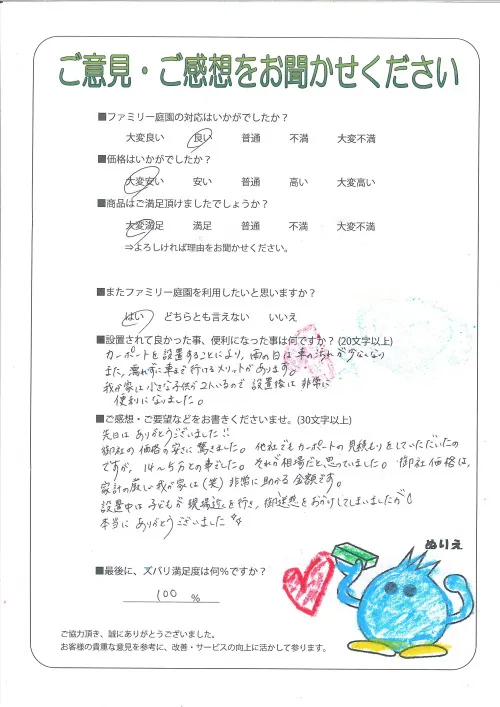 ご意見・ご感想をお聞かせください
■ファミリー庭園の対応はいかがでしたか？
大変良い 良い 普通 不満 大変不満
■価格はいかがでしたか？
大変安い 安い 普通 高い 大変高い
■商品はご満足頂けましたでしょうか？
大変満足 満足 普通 不満 大変不満
⇒よろしければ理由をお聞かせください。
■またファミリー庭園を利用したいと思いますか？
はい どちらとも言えない いいえ
■設置されて良かった事、便利になった事は何ですか？(20文字以上)
カーポートを設置することにより、雨の日は車の汚れが少なくなり
また、濡れずに車まで行けるメリットがあります。
我が家は小さな子供が2人いるので設置後は非常に
便利になりました。
■ご感想・ご要望などをお書きくださいませ。(30文字以上)
先日はありがとうございました!!
御社の価格の安さに驚きました。他社でもカーポートの見積もりをしていただいたの
ですが、14～5万との事でした。それが相場だと思っていました。御社価格は、
家計の厳しい我が家は(笑)非常に助かる金額です。
設置中は子どもが現場近を行き、御迷惑をおかけしてしまいましたが
本当にありがとうございました
■最後に、ズバリ満足度は何％ですか？
100 %
ぬりえ
ご協力頂き、誠にありがとうございました。
お客様の貴重な意見を参考に、改善・サービスの向上に活かして参ります。